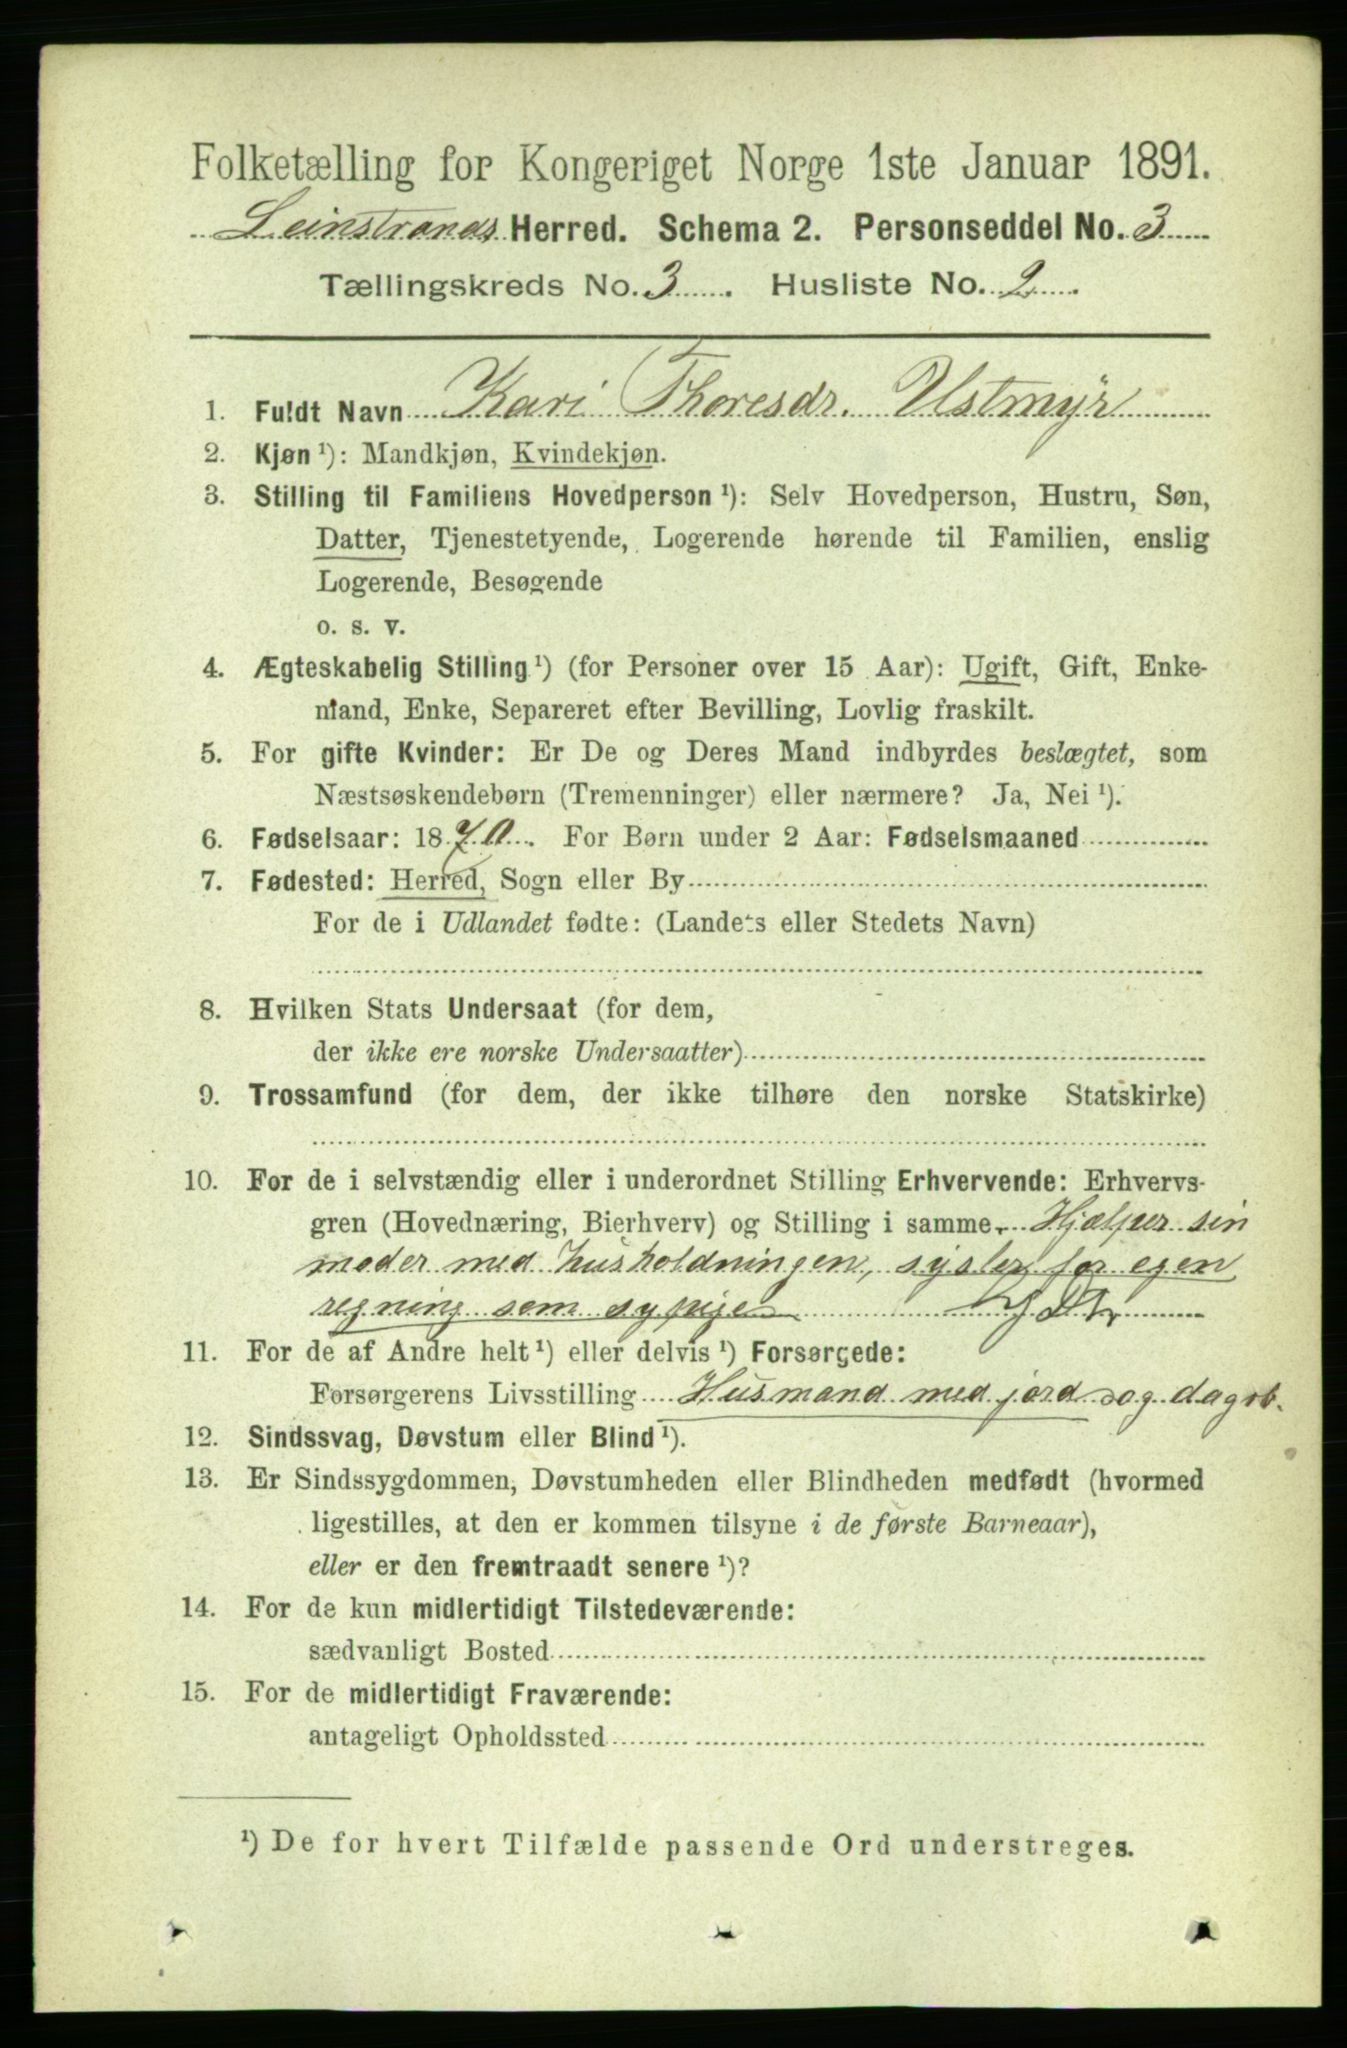 Folketælling for Kongeriget Norge 1ste Januar 1891.
Leinstrands Herred. Schema 2. Personseddel No. 3
Tællingskreds No. 3. Husliste No. 2.
1. Fuldt Navn Kari Thoresdr. Ustmyr
2. Kjøn ¹): Mandkjøn, Kvindekjøn.
3. Stilling til Familiens Hovedperson ¹): Selv Hovedperson, Hustru, Søn,
Datter, Tjenestetyende, Logerende hørende til Familien, enslig
Logerende, Besøgende
o. s. v.
4. Ægteskabelig Stilling ¹) (for Personer over 15 Aar): Ugift, Gift, Enke-
mand, Enke, Separeret efter Bevilling, Lovlig fraskilt.
5. For gifte Kvinder: Er De og Deres Mand indbyrdes beslægtet, som
Næstsøskendebørn (Tremenninger) eller nærmere? Ja, Nei ¹).
6. Fødselsaar: 1870. For Børn under 2 Aar: Fødselsmaaned
7. Fødested: Herred, Sogn eller By
For de i Udlandet fødte: (Landets eller Stedets Navn)
8. Hvilken Stats Undersaat (for dem,
der ikke ere norske Undersaatter)
9. Trossamfund (for dem, der ikke tilhøre den norske Statskirke)
10. For de i selvstændig eller i underordnet Stilling Erhvervende: Erhvervs-
gren (Hovednæring, Bierhverv) og Stilling i samme. Hjælper sin
moder med husholdningen, sysler for egen
regning som sypige
11. For de af Andre helt ¹) eller delvis ¹) Forsørgede:
Forsørgerens Livsstilling Husmand med jord og dagrb.
12. Sindssvag, Døvstum eller Blind ¹).
13. Er Sindssygdommen, Døvstumheden eller Blindheden medfødt (hvormed
ligestilles, at den er kommen tilsyne i de første Barneaar),
eller er den fremtraadt senere ¹)?
14. For de kun midlertidigt Tilstedeværende:
sædvanligt Bosted
15. For de midlertidigt Fraværende:
antageligt Opholdssted
¹) De for hvert Tilfælde passende Ord understreges.